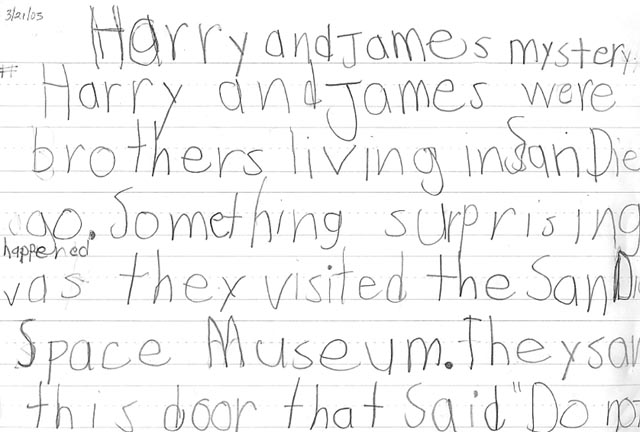 3/21/05
Harry and James mystery
Harry and James were
brothers living in San Die
go. Something surprising
happened
was they visited the San Di
Space Museum. They saw
this door that Said "Do not